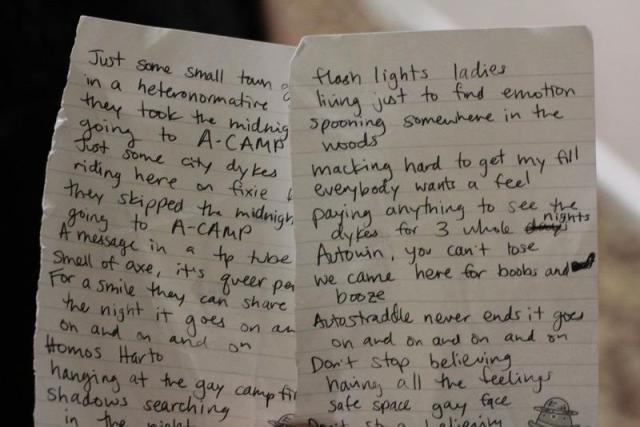 Just some small town
in a heteronormative
they took the midnig
going to A-CAMP
Just some city dykes
riding here on fixie
they skipped the midnigh
going to A-CAMP
A message in a tp tube
Smell of axe, it's queer per
For a smile they can share
the night it goes on an
on and on and on
Homos Harto
hanging at the gay camp fir
shadows searching
in the night
flash lights ladies
living just to find emotion
spooning somewhere in the
woods
macking hard to get my fill
everybody wants a feel
paying anything to see the
dykes for 3 whole nights
Autowin, you can't lose
we came here for boobs and
booze
Autostraddle never ends it goes
on and on and on and on
Don't stop believing
having all the feelings
safe space gay face
Don't